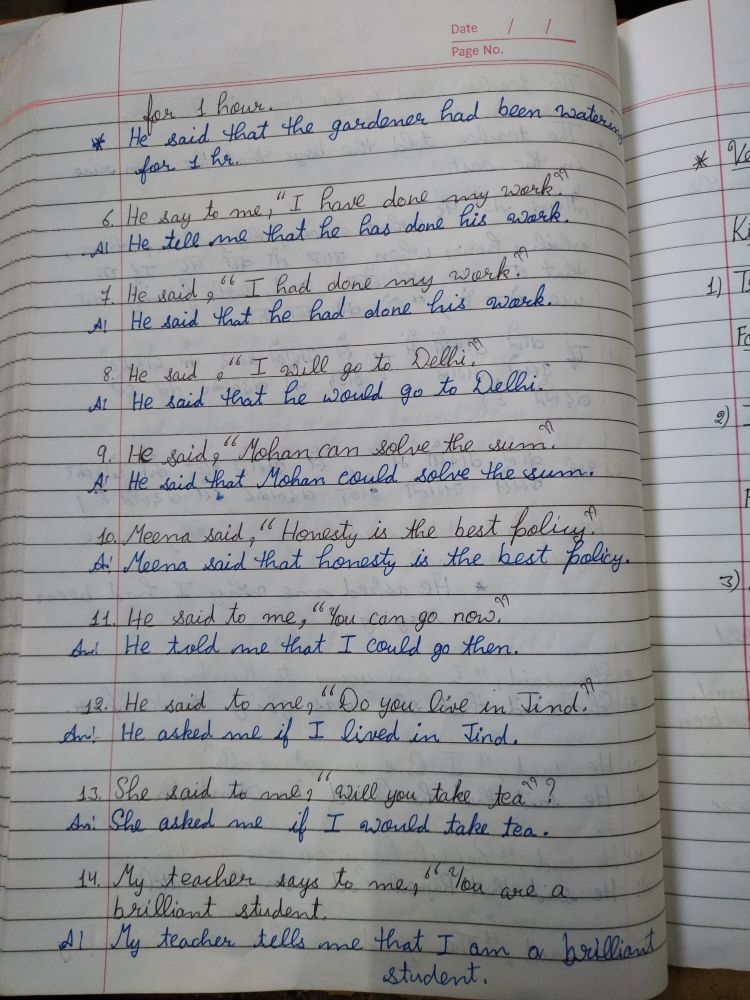 Date / /
Page No.
for 1 hour.
* He said that the gardener had been watering
for 1 hr.
6. He say to me, "I have done my work."
A! He tell me that he has done his work.
7. He said, "I had done my work."
A! He said that he had done his work.
8. He said, "I will go to Delhi."
A! He said that he would go to Delhi.
9. He said, "Mohan can solve the sum."
A! He said that Mohan could solve the sum.
10. Meena said, "Honesty is the best policy."
A! Meena said that honesty is the best policy.
11. He said to me, "You can go now."
An! He told me that I could go then.
12. He said to me, "Do you live in Jind."
An! He asked me if I lived in Jind.
13. She said to me, "will you take tea"?
An! She asked me if I would take tea.
14. My teacher says to me, "You are a
brilliant student.
A! My teacher tells me that I am a brilliant
student.
*
1)
2)
3)